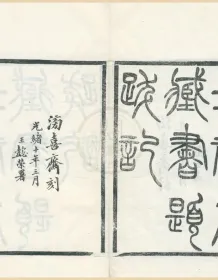 藏書題
跋記
滂喜齋刻
光緒十年三月
王懿榮署